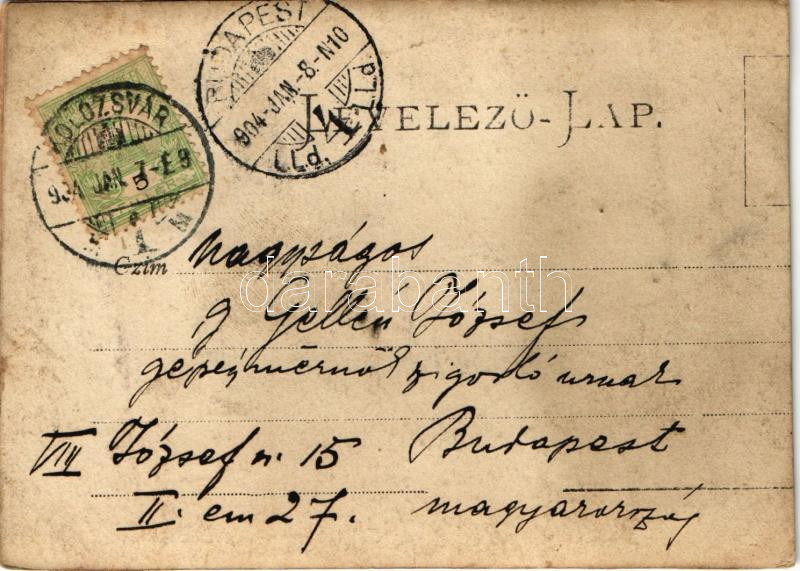 BUDAPEST
904-JAN.-8-N10
KOLOZSVÁR
904 JAN. 7-É9
LEVELEZŐ-LAP.
Czím Nagyságos
Gellen József
gépészmérnök szigorló urnak
VIII József u. 15 Budapest
II. em 27. magyarország
darabanth